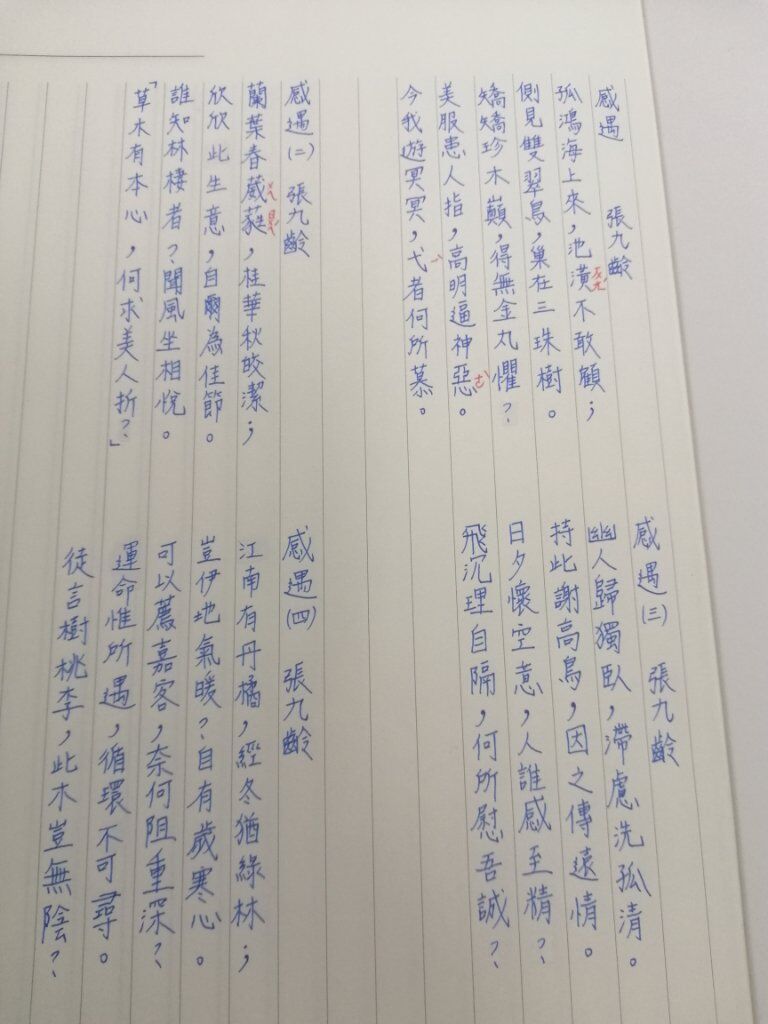 感遇 張九齡
孤鴻海上來，池潢不敢顧；
側見雙翠鳥，巢在三珠樹。
矯矯珍木巔，得無金丸懼？
美服患人指，高明逼神惡。
今我遊冥冥，弋者何所慕。
感遇(二) 張九齡
蘭葉春葳蕤，桂華秋皎潔；
欣欣此生意，自爾為佳節。
誰知林棲者？聞風坐相悅。
「草木有本心，何求美人折？」
感遇(三) 張九齡
幽人歸獨臥，滯慮洗孤清。
持此謝高鳥，因之傳遠情。
日夕懷空意，人誰感至精？
飛沉理自隔，何所慰吾誠？
感遇(四) 張九齡
江南有丹橘，經冬猶綠林；
豈伊地氣暖？自有歲寒心。
可以薦嘉客，奈何阻重深？
運命惟所遇，循環不可尋。
徒言樹桃李，此木豈無陰？